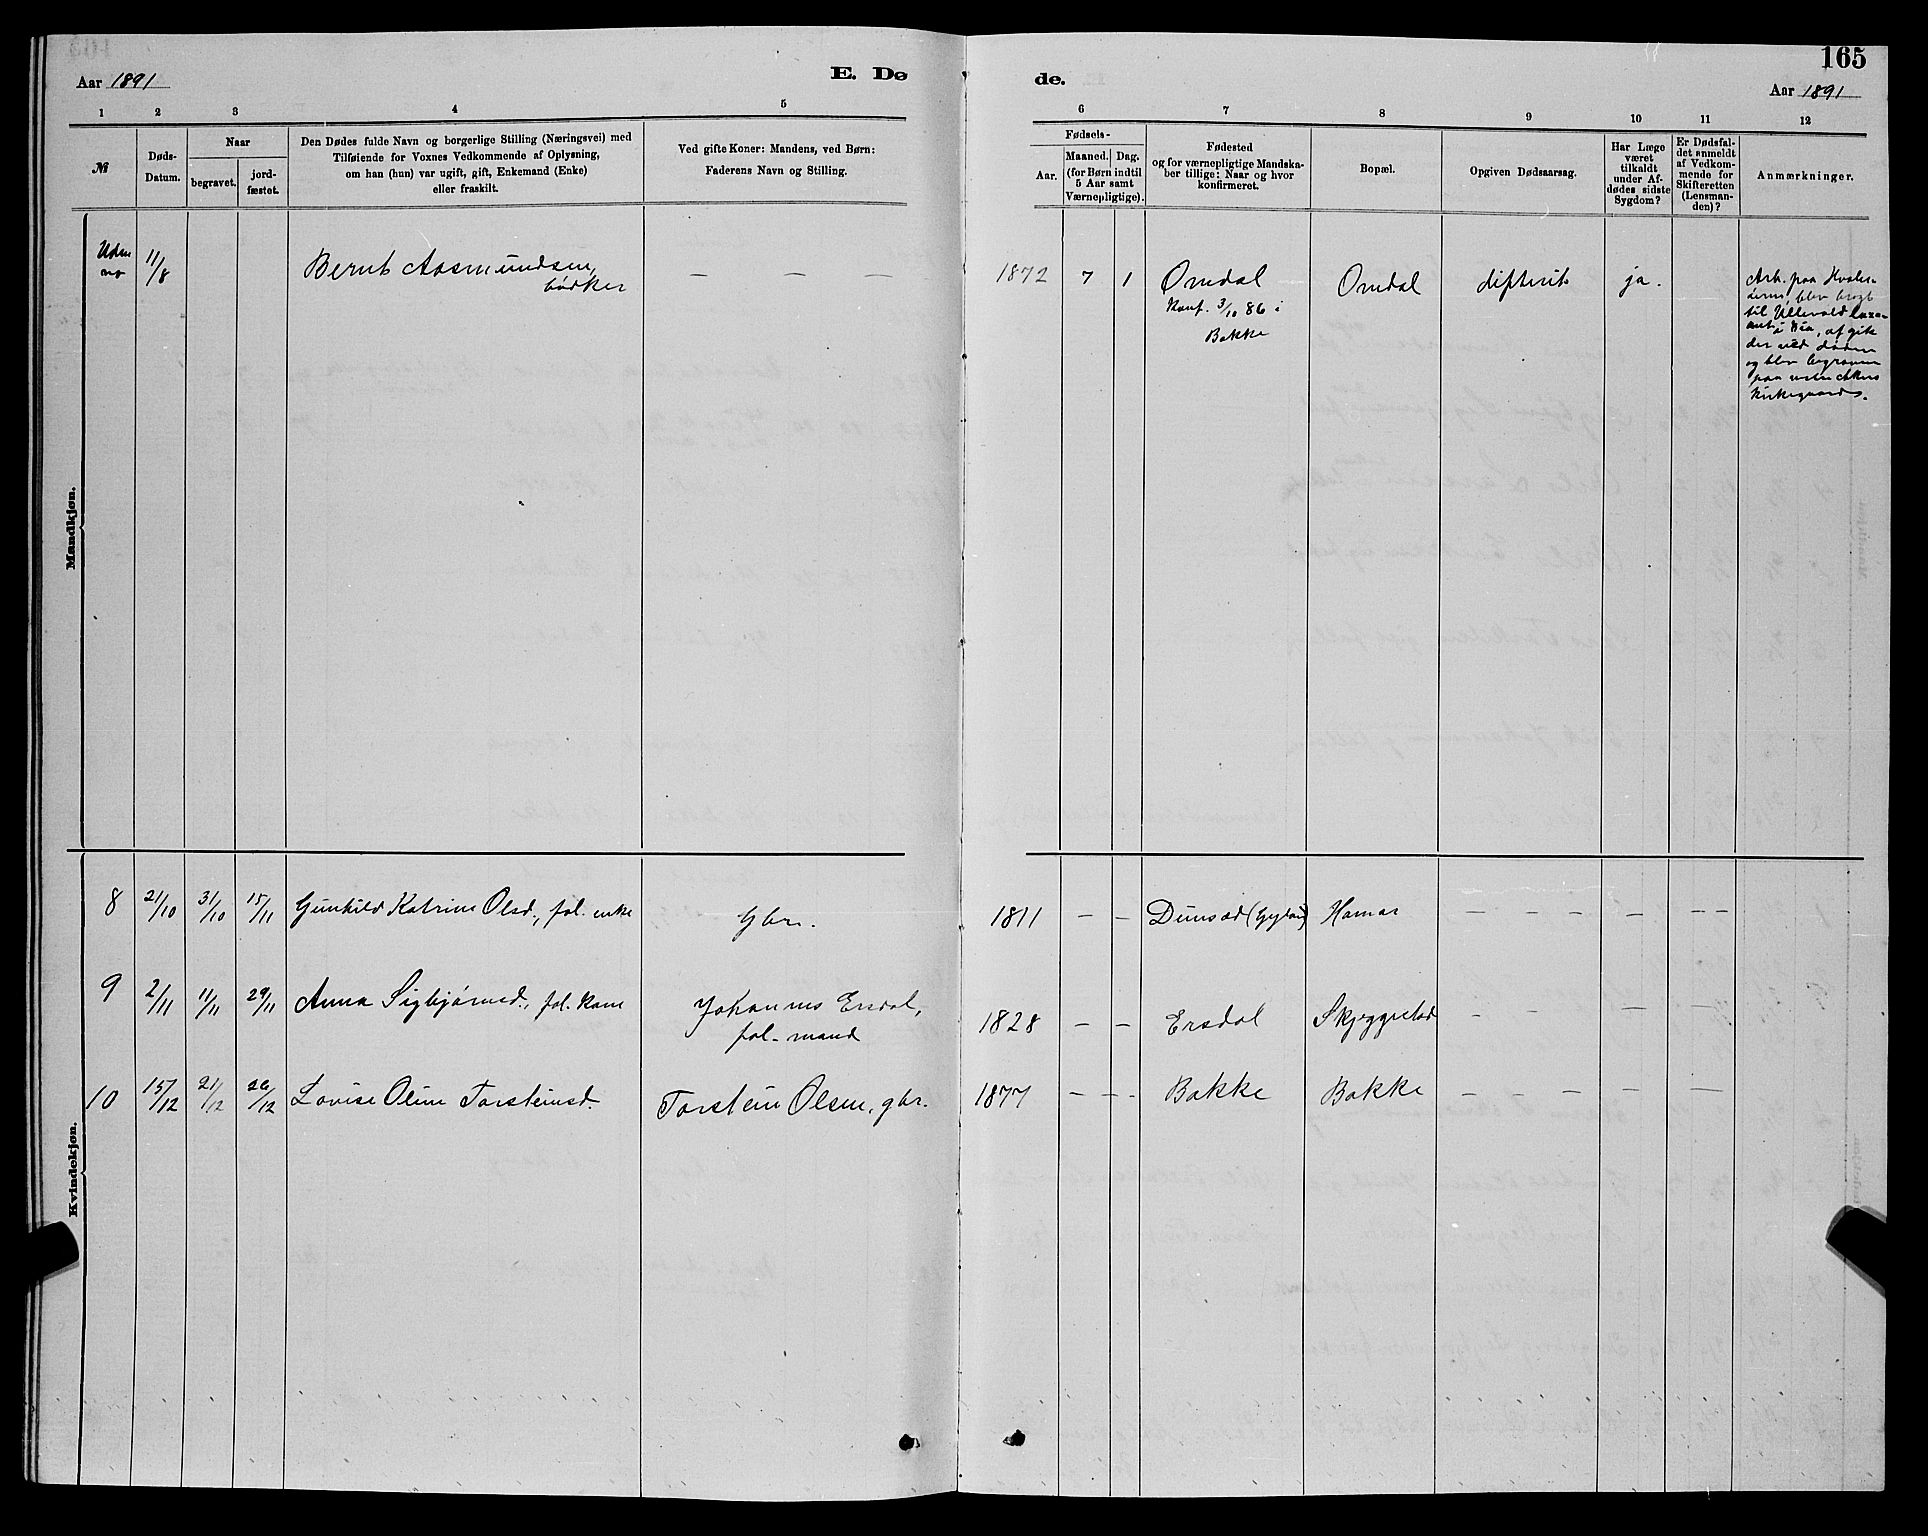 165
Aar 1891
E. Dø
de.
Aar 1891
1 2 3 4 5 6 7 8 9 10 11 12
№
Døds-
Datum.
Naar
begravet.
jord-
fæstet.
Den Dødes fulde Navn og borgerlige Stilling (Næringsvei) med
Tilføiende for Voxnes Vedkommende af Oplysning,
om han (hun) var ugift, gift, Enkemand (Enke)
eller fraskilt.
Ved gifte Koner: Mandens, ved Børn:
Faderens Navn og Stilling.
Fødsels-
Aar.
Maaned. Dag.
(for Børn indtil
5 Aar samt
Værnepligtige).
Fødested
og for værnepligtige Mandska-
ber tillige: Naar og hvor
konfirmeret.
Bopæl.
Opgiven Dødsaarsag.
Har Læge
været
tilkaldt
under Af-
dødes sidste
Sygdom?
Er Dødsfal-
det anmeldt
af Vedkom-
mende for
Skifteretten
(Lensman-
den)?
Anmærkninger.
Mandkjøn.
Uden
no
11/8
Bernt Aasmundsen,
bødker
— — —
1872 7 1
Omdal
Konf. 3/10 86 i
Bakke
Omdal
difterit
ja.
Arb. paa Hvaler-
øerne, blev bragt
til Ullevold laza-
ret, afgik
der ved døden
og blev begraven
paa vestre Akers
kirkegaard.
Kvindekjøn.
8 21/10 31/10 15/11 Gunhild Katrine Olsd., fol. enke
Gbr.
1811 — — Dunsæd (Gyland) Hamar — — — — — —
9 2/11 11/11 29/11 Anna Sigbjørnsd., fol. kone
Johannes Ersdal,
fol-mand
1828 — — Ersdal Skjeggestad — — — — —
10 15/12 21/12 26/12 Lovise Oline Torsteinsd.
Torstein Olsen, gbr.
1877 — — - Bakke Bakke — — — — —